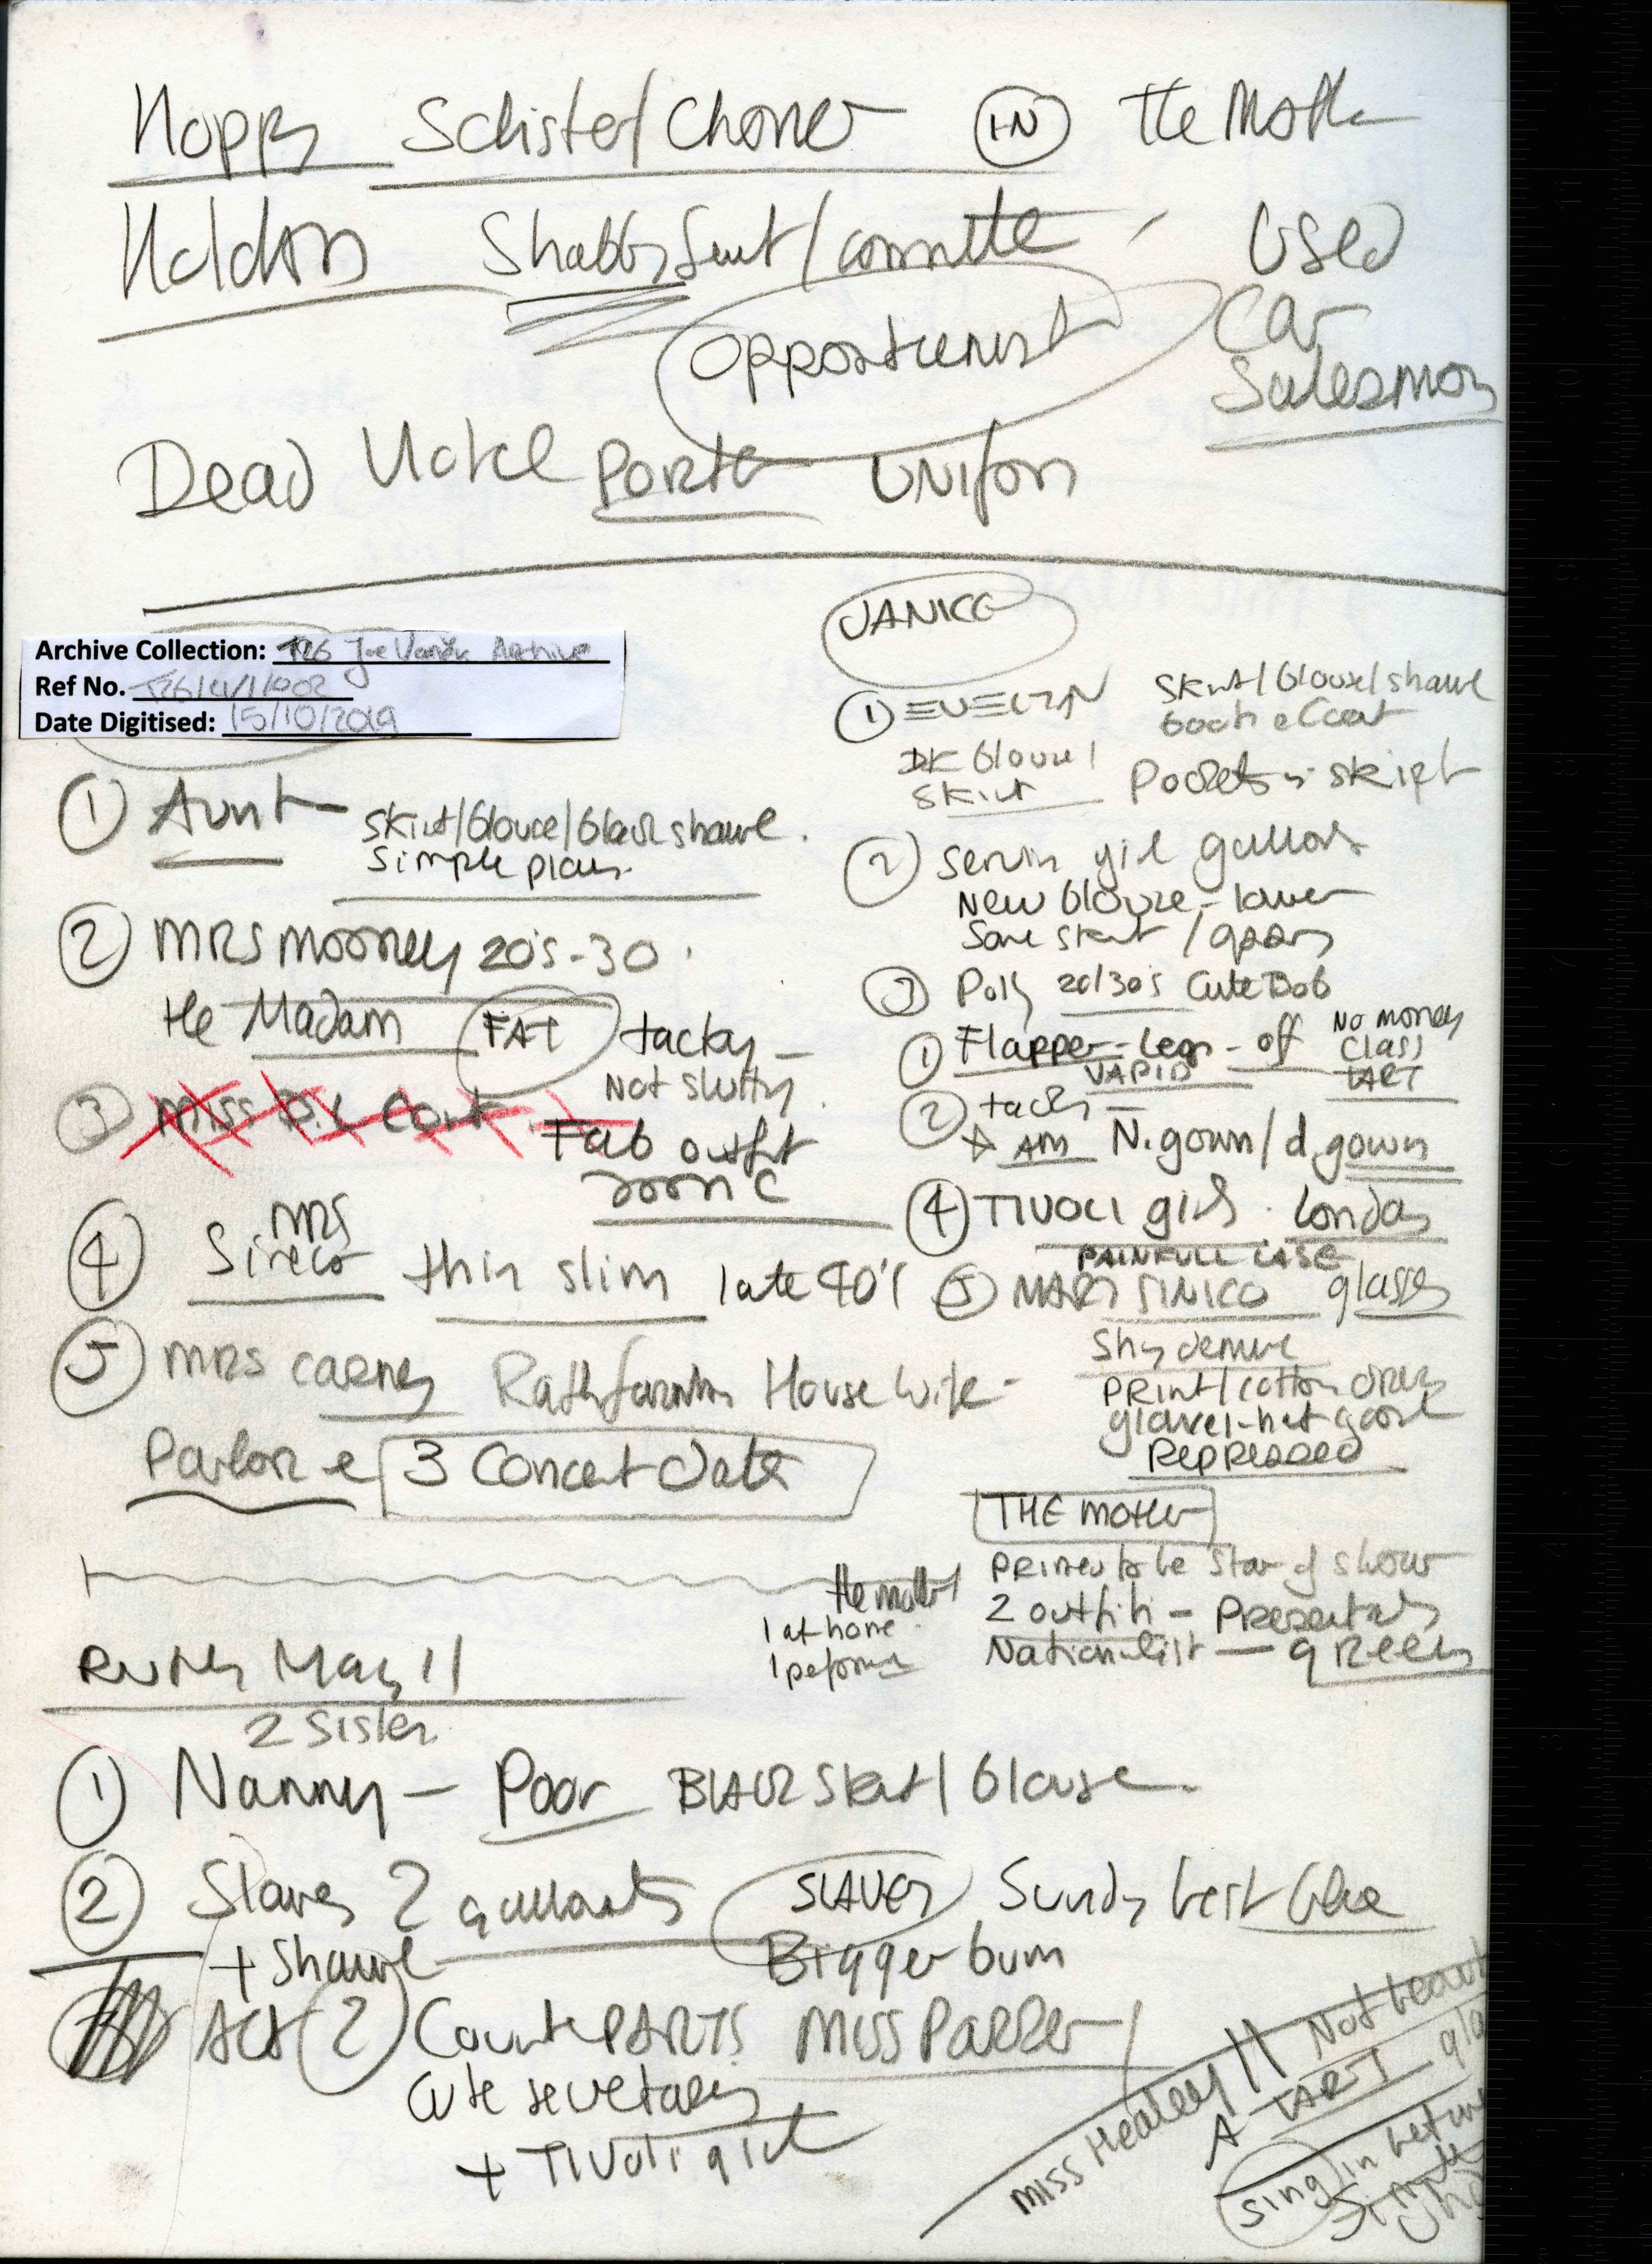 Hoppy Holohan
IN The Mother
Shabby Suit / committe - Used
Car
Salesman
Opportunist
Dead Hotel Porter Uniform
Archive Collection: T26 Joe Vanek Archive
Ref No.
Date Digitised: 15/10/2019
① Aunt - skirt/blouse/black shawl.
simple plain.
② MRS Mooney 20's-30
the Madam FAT tacky -
Not slutty.
③ Miss
Fab outfit
④ MRS
Sineco thin slim late 40's
⑤ MRS Carney Rathfarnham House wife -
Parlor & 3 Concert Date
JANICE
① EVELYN skirt/blouse/shawl
Coat
DK blouse/
skirt Pockets in skirt
② Servin girl gallants
New blouse - lower
Same skirt / apron
③ Polly 20/30's cute Bob
① Flapper - legs - off NO money
class
VAPID TART
② tacky -
AM N.gown/d.gown
④ TIVOLI girl. London
PAINFULL CASE
⑤ MARY SINICO glasses
Shy demure
PRINT/cotton dress
gloves-hat
Repressed
THE Mother
Primed to be Star of show
2 outfits - Presentable
Nationalist - green
the mother
1 at home.
1 peformer
Ruth May 11
2 Sister.
① Nanny - Poor BLACK Skirt / blouse.
② Slavey 2 gallants SLAVEY Sunday best blue
+ Shawl Bigger bum
Act 2 CounterPARTS Miss Parker
Cute secretary
+ Tivoli girl
Miss Healey Not
A TART
sing in